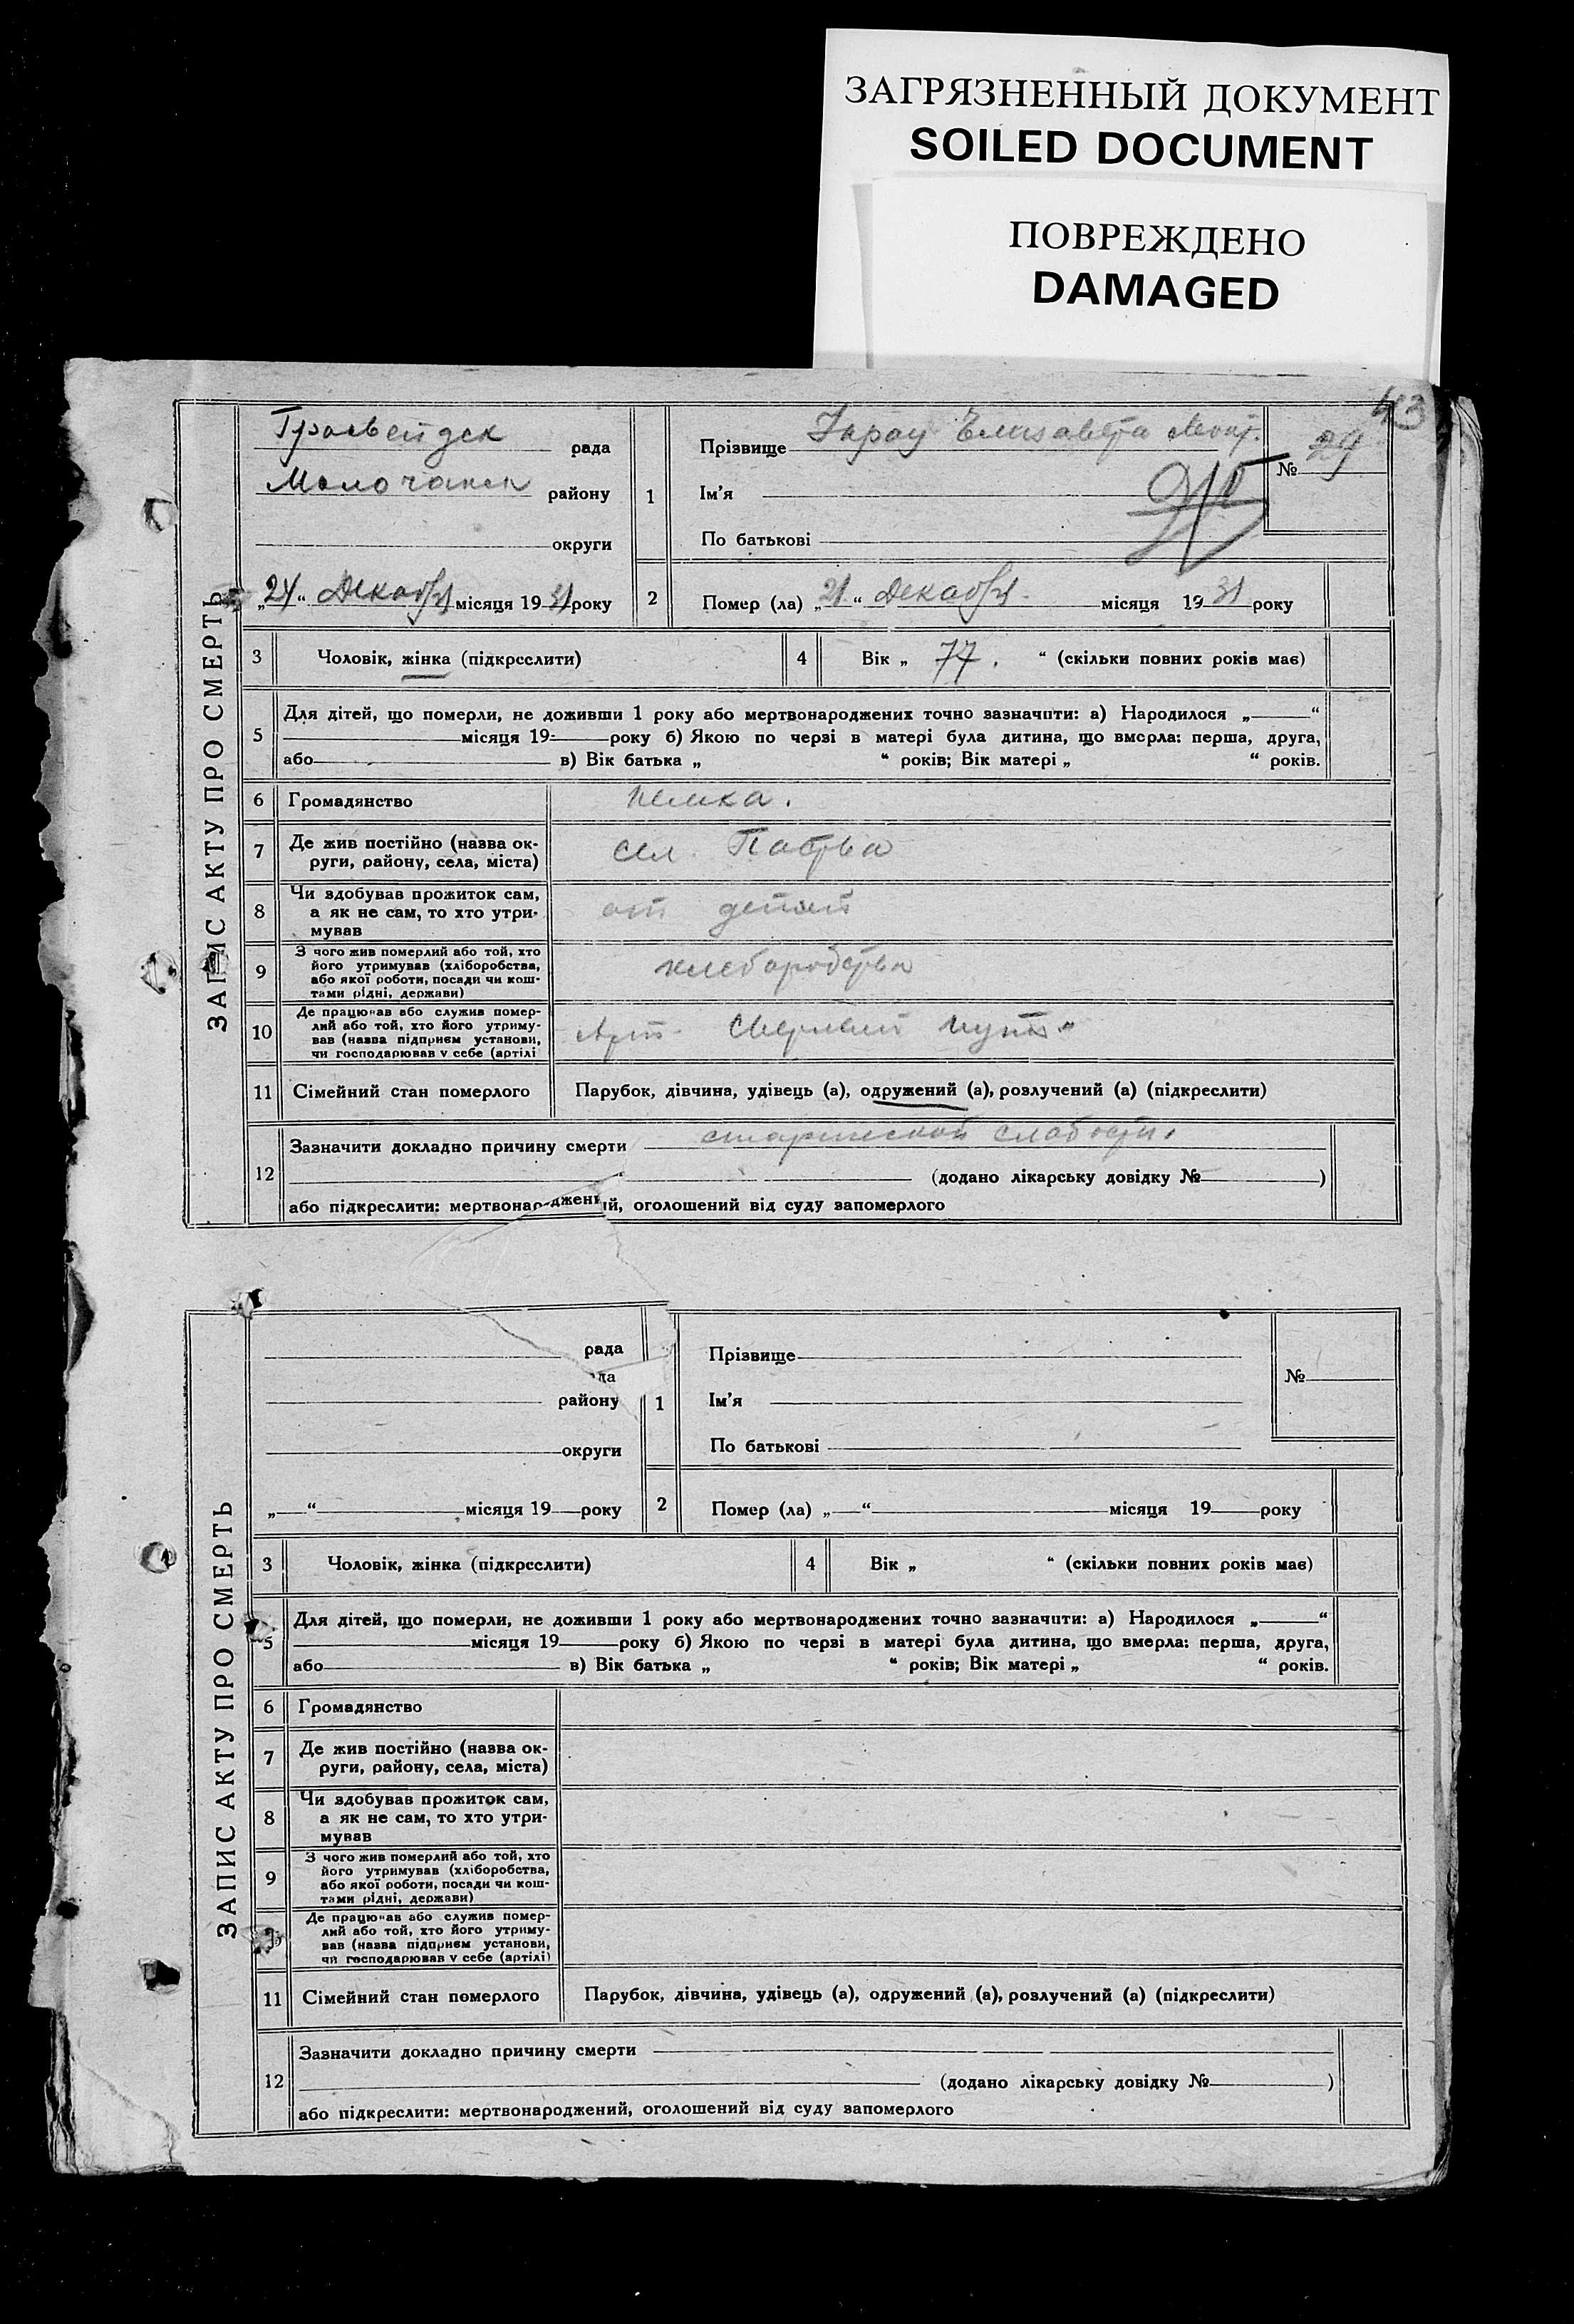 ЗАГРЯЗНЕННЫЙ ДОКУМЕНТ
SOILED DOCUMENT
ПОВРЕЖДЕНО
DAMAGED
43
ЗАПИС АКТУ ПРО СМЕРТЬ
рада
Молочанск району
округи
„24“ Декабря місяця 1931 року
1
Прізвище Елизавета
Ім'я
По батькові
№ 24
2
Помер (ла) „21“ Декабря місяця 1931 року
3 Чоловік, жінка (підкреслити)
4 Вік „ 77. “ (скільки повних років має)
5
Для дітей, що померли, не доживши 1 року або мертвонароджених точно зазначити: а) Народилося „ “
місяця 19 року б) Якою по черзі в матері була дитина, що вмерла: перша, друга,
або в) Вік батька „ “ років; Вік матері „ “ років.
6 Громадянство немка.
7 Де жив постійно (назва ок-
руги, району, села, міста)
сел.
8 Чи здобував прожиток сам,
а як не сам, то хто утри-
мував
от детей
9 З чого жив померлий або той, хто
його утримував (хліборобства,
або якої роботи, посади чи кош-
тами рідні, держави)
хлеборобства
10 Де працював або служив помер-
лий або той, хто його утриму-
вав (назва підприєм установи,
чи господарював у себе (артілі
Арт. путь
11 Сімейний стан померлого Парубок, дівчина, удівець (а), одружений (а), розлучений (а) (підкреслити)
12
Зазначити докладно причину смерти старческой слабости.
(додано лікарську довідку № )
або підкреслити: мертвонароджений, оголошений від суду запомерлого
ЗАПИС АКТУ ПРО СМЕРТЬ
рада
да
району
округи
„ “ місяця 19 року
1
Прізвище
Ім'я
По батькові
№
2
Помер (ла) „ “ місяця 19 року
3 Чоловік, жінка (підкреслити)
4 Вік „ “ (скільки повних років має)
5
Для дітей, що померли, не доживши 1 року або мертвонароджених точно зазначити: а) Народилося „ “
місяця 19 року б) Якою по черзі в матері була дитина, що вмерла: перша, друга,
або в) Вік батька „ “ років; Вік матері „ “ років.
6 Громадянство
7 Де жив постійно (назва ок-
руги, району, села, міста)
8 Чи здобував прожиток сам,
а як не сам, то хто утри-
мував
9 З чого жив померлий або той, хто
його утримував (хліборобства,
або якої роботи, посади чи кош-
тами рідні, держави)
Де працював або служив помер-
лий або той, хто його утриму-
вав (назва підприєм установи,
чи господарював у себе (артілі)
11 Сімейний стан померлого Парубок, дівчина, удівець (а), одружений (а), розлучений (а) (підкреслити)
12
Зазначити докладно причину смерти
(додано лікарську довідку № )
або підкреслити: мертвонароджений, оголошений від суду запомерлого